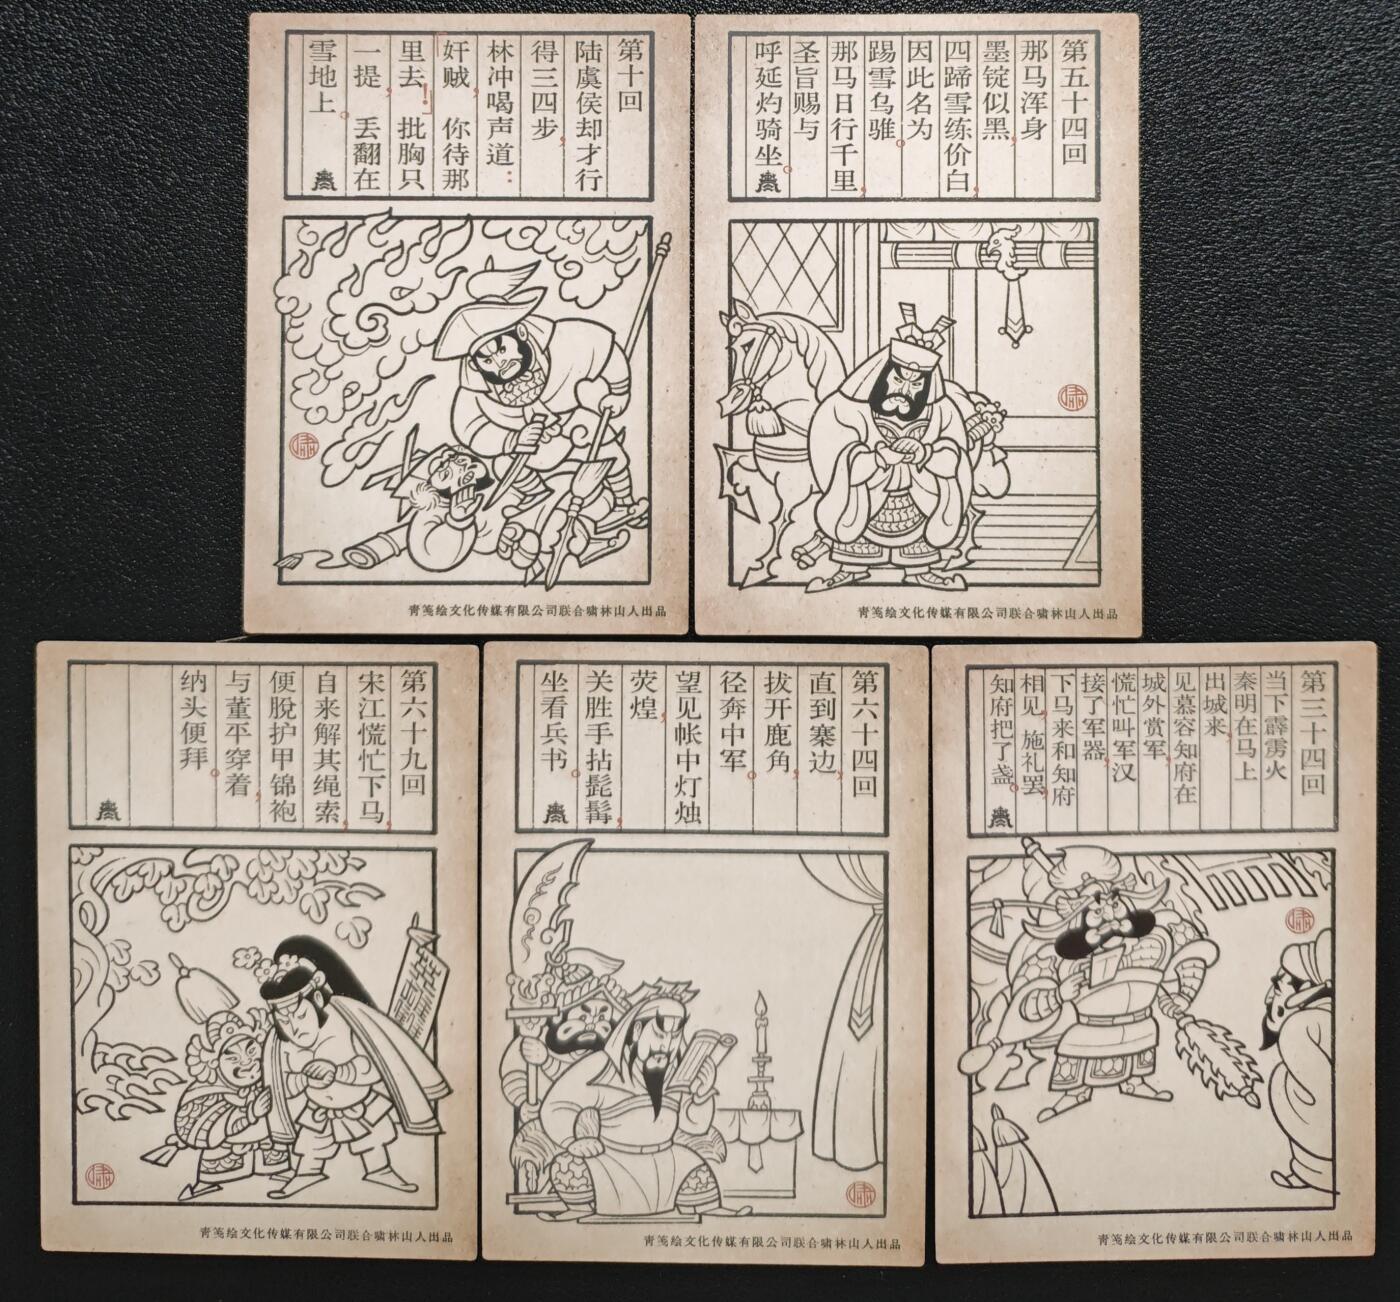 第十回
陆虞侯却才行
得三四步，
林冲喝声道：
奸贼，你待那
里去！」批胸只
一提，丢翻在
雪地上。
青笺绘文化传媒有限公司联合啸林山人出品
第五十四回
那马浑身
墨锭似黑，
四蹄雪练价白，
因此名为
踢雪乌骓。
那马日行千里，
圣旨赐与
呼延灼骑坐。
青笺绘文化传媒有限公司联合啸林山人出品
第六十九回
宋江慌忙下马，
自来解其绳索，
便脱护甲锦袍
与董平穿着，
纳头便拜。
青笺绘文化传媒有限公司联合啸林山人出品
第六十四回
直到寨边，
拔开鹿角，
径奔中军。
望见帐中灯烛
荧煌，
关胜手拈髭髯，
坐看兵书。
青笺绘文化传媒有限公司联合啸林山人出品
第三十四回
当下霹雳火
秦明在马上
出城来，
见慕容知府在
城外赏军，
慌忙叫军汉
接了军器，
下马来和知府
相见，施礼罢，
知府把了盏。
青笺绘文化传媒有限公司联合啸林山人出品